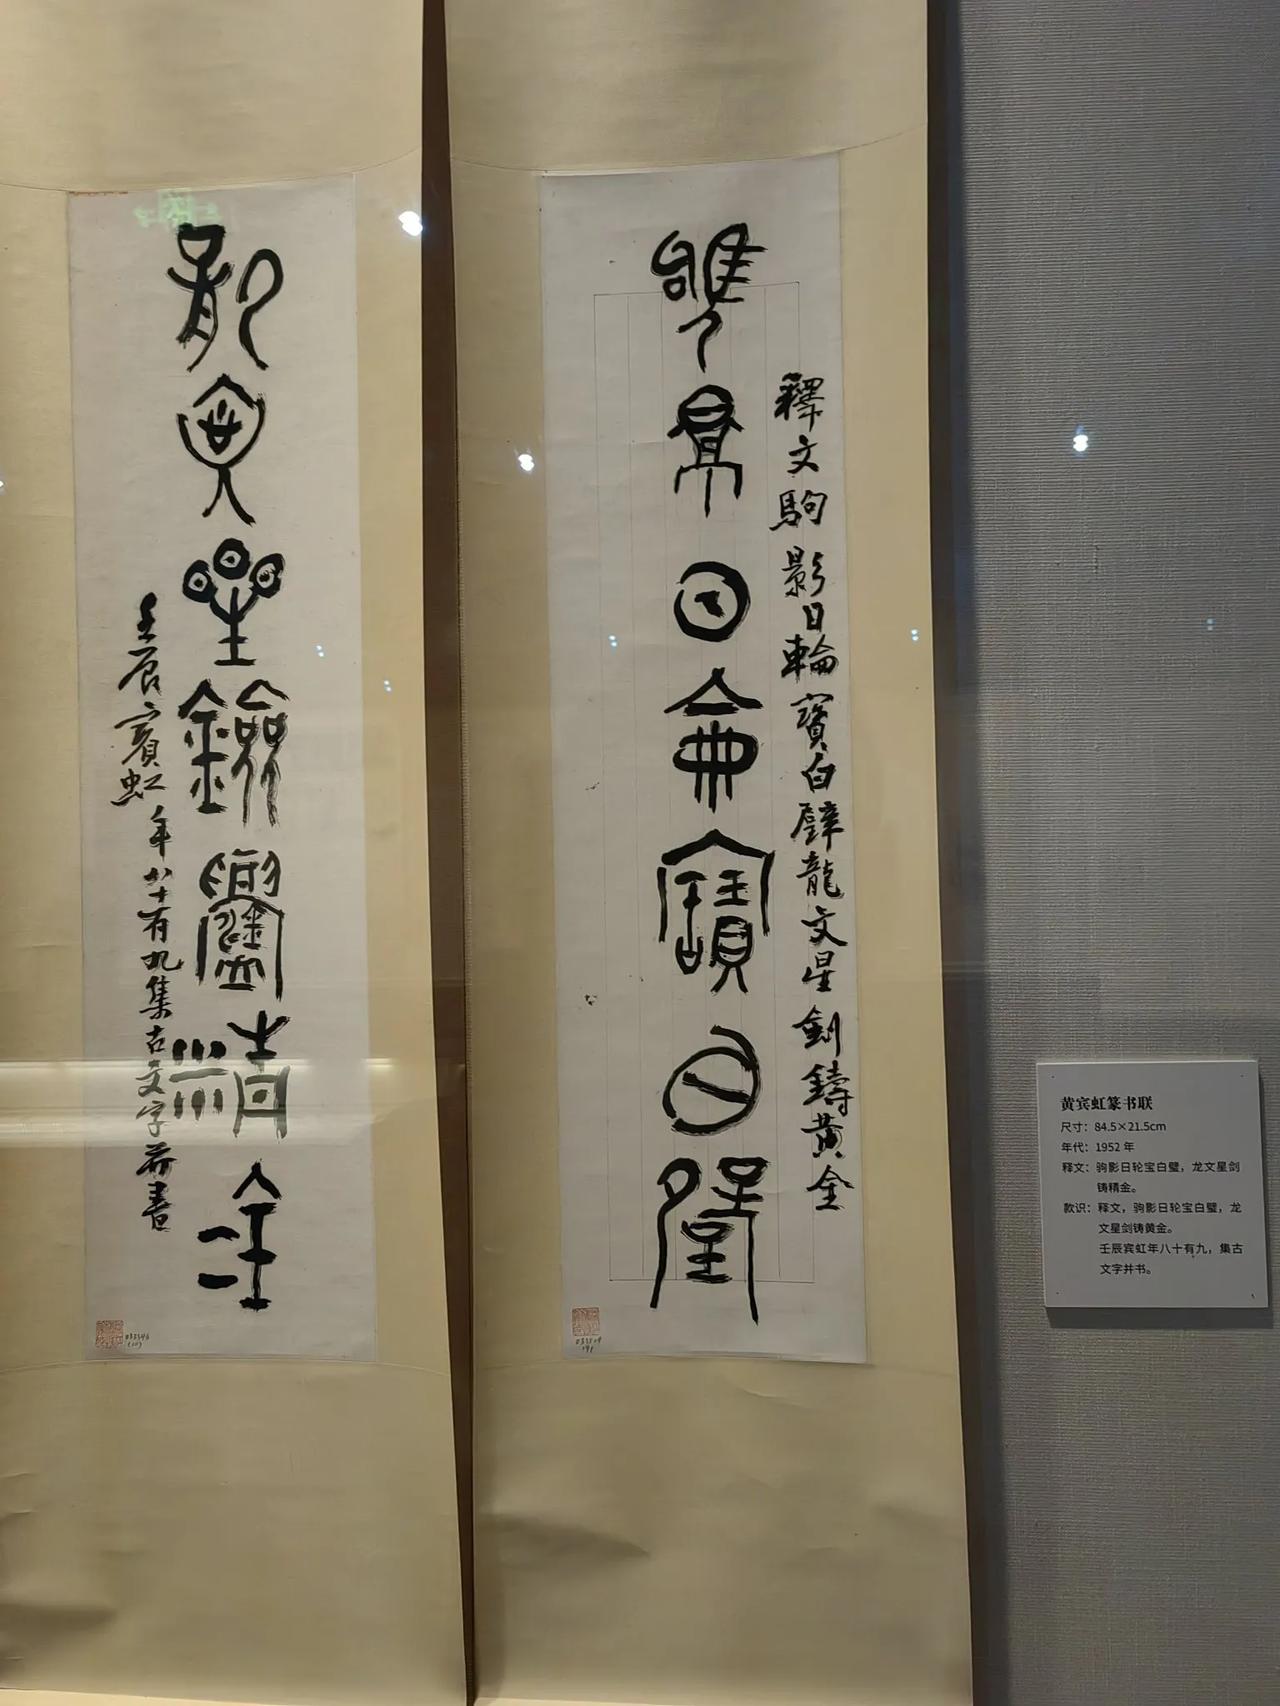 駒影日輪寶白璧
釋文駒影日輪寶白璧龍文星劍鑄黃金
龍文星劍鑄精金
壬辰賓虹年八十有九集古文字并書
黄宾虹篆书联
尺寸：84.5×21.5cm
年代：1952 年
释文：驹影日轮宝白璧，龙文星剑
铸精金。
款识：释文，驹影日轮宝白璧，龙
文星剑铸黄金。
壬辰宾虹年八十有九，集古
文字并书。